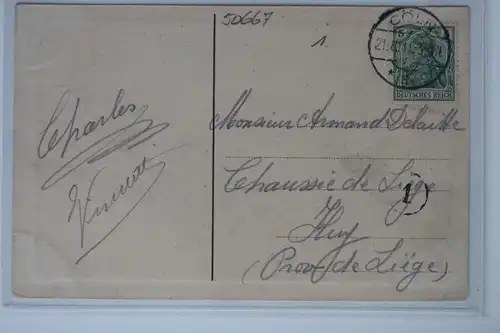 50667
1.
CÖLN
21.6.11
DEUTSCHES REICH
Charles
Monsieur Armand Delaitte
Chaussie de Liége
1
Huy
(Prov. de Liége)